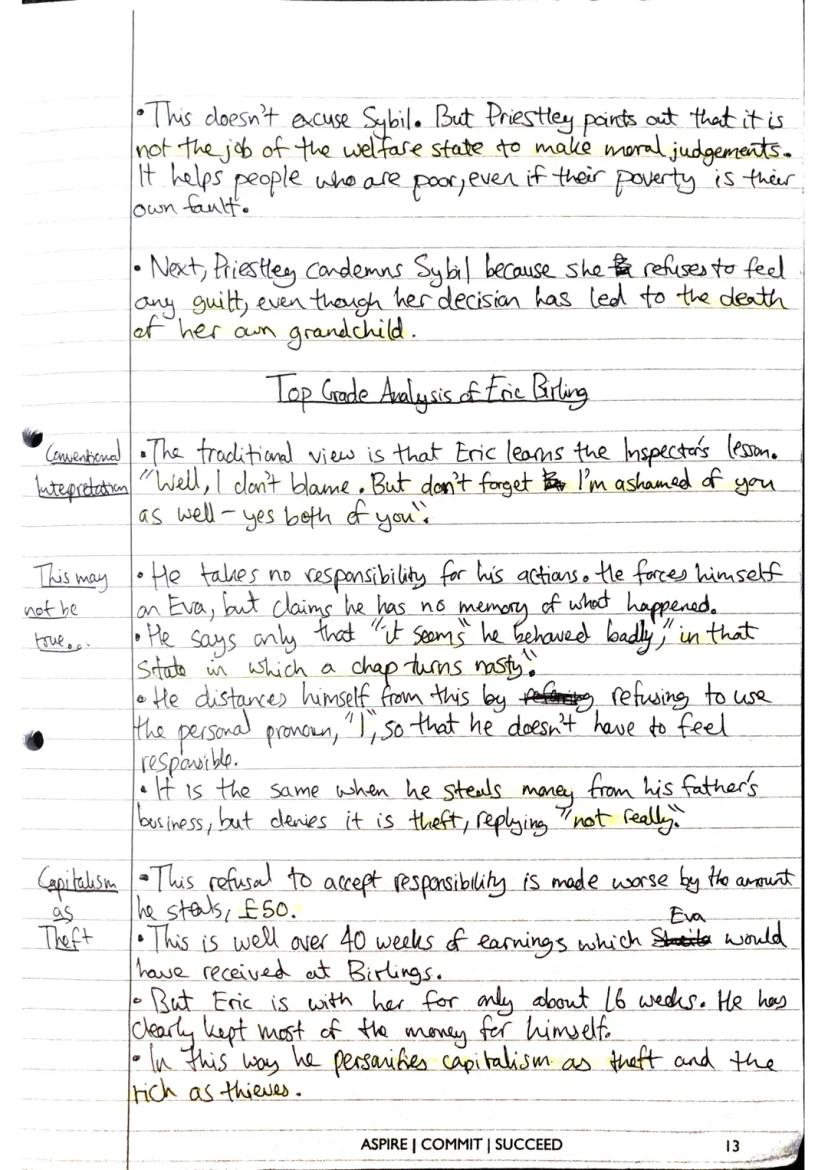 • This doesn't excuse Sybil. But Priestley points out that it is
not the job of the welfare state to make moral judgements.
It helps people who are poor, even if their poverty is their
own fault.
• Next, Priestley condemns Sybil because she refuses to feel
any guilt, even though her decision has led to the death
of her own grandchild.
Top Grade Analysis of Eric Birling
Conventional
Intepretation
• The traditional view is that Eric learns the Inspector's lesson.
"Well, I don't blame. But don't forget I'm ashamed of you
as well – yes both of you".
This may
not be
true...
• He takes no responsibility for his actions. He forces himself
on Eva, but claims he has no memory of what happened.
• He says only that "it seems" he behaved badly, "in that
state in which a chap turns nasty".
• He distances himself from this by refusing to use
the personal pronoun, "I", so that he doesn't have to feel
responsible.
• It is the same when he steals money from his father's
business, but denies it is theft, replying "not really".
Capitalism
as
Theft
• This refusal to accept responsibility is made worse by the amount
he steals, £50.
• This is well over 40 weeks of earnings which Eva would
have received at Birlings.
• But Eric is with her for only about 16 weeks. He has
clearly kept most of the money for himself.
• In this way he personifies capitalism as theft and the
rich as thieves.
ASPIRE | COMMIT | SUCCEED 13